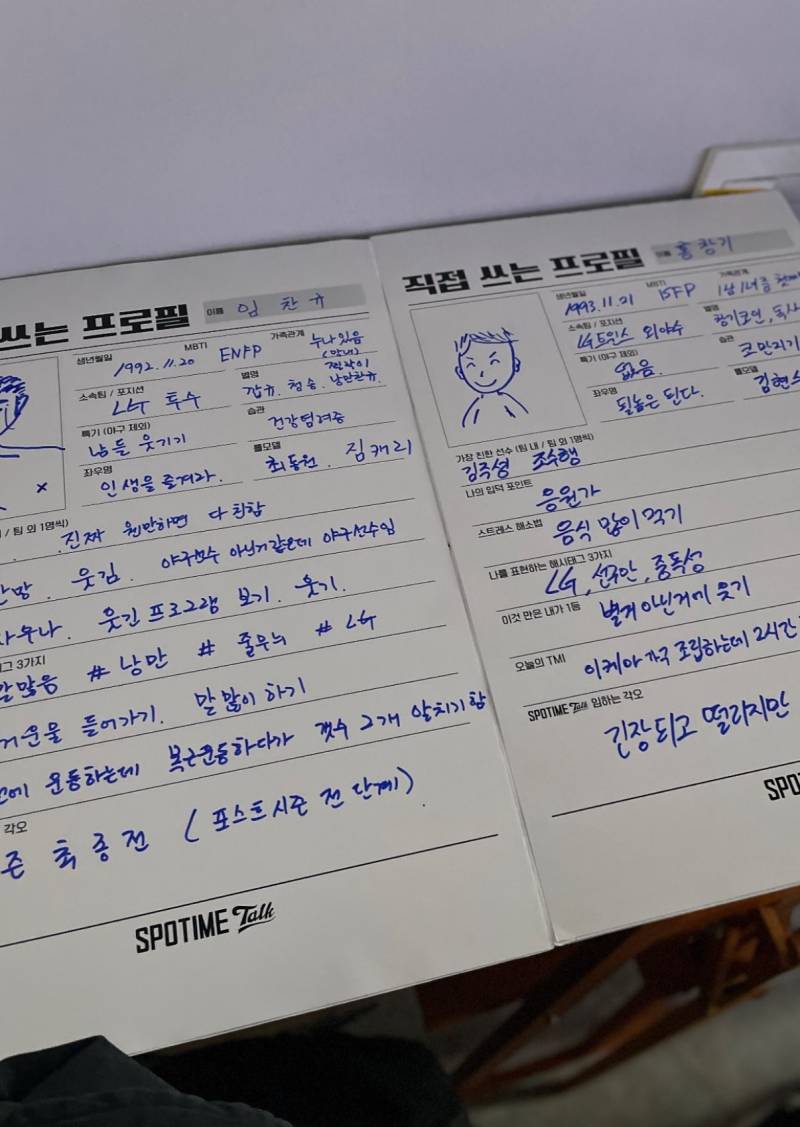 쓰는 프로필
이름 임찬규
생년월일 1992.11.20
MBTI ENFP
가족관계 누나있음 (막내)
소속팀 / 포지션 LG 투수
별명 찍찍이 깝규. 청송. 낭만찬규.
특기 (야구 제외) 남들 웃기기
습관 건강염려증
좌우명 인생을 즐겨라.
롤모델 최동원. 짐캐리
/ 팀 외 1명씩)
진짜 웬만하면 다 친함
웃김. 야구선수 아닌거같은데 야구선수임
사우나. 웃긴 프로그램 보기. 웃기.
그 3가지
말많음 # 낭만 # 줄무늬 # LG
거운물 들어가기. 말 많이 하기
전에 운동하는데 복근운동하다가 갯수 2개 알치기함
각오
즌 최종전 (포스트시즌 전 단계).
SPOTIME Talk
직접 쓰는 프로필
이름 홍창기
생년월일 1993.11.21
MBTI ISFP
가족관계 1남1녀 중 첫째
소속팀 / 포지션 LG트윈스 외야수
별명 창기코인,
특기 (야구 제외) 없음.
습관 코만지기
좌우명 될놈은 된다.
롤모델 김현수
가장 친한 선수 (팀 내 / 팀 외 1명씩)
김주성 조수행
나의 입덕 포인트 응원가
스트레스 해소법 음식 많이 먹기
나를 표현하는 해시태그 3가지
LG, 선구안, 중독성
이것 만은 내가 1등 별거 아닌거에 웃기
오늘의 TMI 이케아 가구 조립하는데 2시간
SPOTIME Talk 임하는 각오
긴장되고 떨리지만
SPO